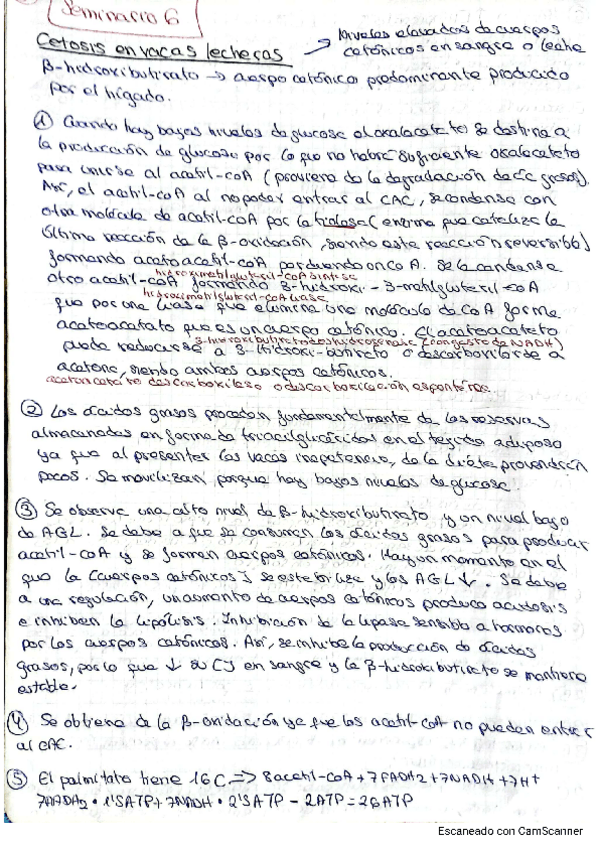 Seminario 6
Cetosis en vacas lecheras → Niveles elevados de cuerpos
cetónicos en sangre o leche
β-hidroxibutirato → cuerpo cetónico predominante producido
por el hígado.
① Cuando hay bajos niveles de glucosa el oxalacetato se destina a
la producción de glucosa por lo que no habrá suficiente oxalacetato
para unirse al acetil-coA (proviene de la degradación de ác grasos).
Así, el acetil-coA al no poder entrar al CAC, se condensa con
otra molécula de acetil-coA por la tiolasa (enzima que cataliza la
última reacción de la β-oxidación, siendo esta reacción reversible)
formando acetoacetil-coA, perdiendo un coA. Se le condensa
hidroximetilglutaril-coA sintasa
otro acetil-coA formando 3-hidroxi-3-metilglutaril-coA
hidroximetilglutaril-coA liasa
que por una liasa que elimina una molécula de coA forma
acetoacetato que es un cuerpo cetónico. El acetoacetato
3-hidroxibutirato deshidrogenasa (congasto de NADH)
puede reducirse a 3-hidroxi-butirato o descarboxilarse a
acetona, siendo ambos cuerpos cetónicos.
acetoacetato descarboxilasa o descarboxilación espontánea
② Los ácidos grasos proceden fundamentalmente de las reservas
almacenadas en forma de triacilglicéridos en el tejido adiposo
ya que al presentar las vacas inapetencia, de la dieta provendrán
pocos. Se movilizan porque hay bajos niveles de glucosa.
③ Se observa una alto nivel de β-hidroxibutirato y un nivel bajo
de AGL. Se debe a que se consumen los ácidos grasos para producir
acetil-coA y se forman cuerpos cetónicos. Hay un momento en el
que la [cuerpos cetónicos] se estabiliza y los AGL ↓. Se debe
a una regulación, un aumento de cuerpos cetónicos produce acidosis
e inhiben la lipólisis. Inhibición de la lipasa sensible a hormonas
por los cuerpos cetónicos. Así, se inhibe la producción de ácidos
grasos, por lo que ↓ su [] en sangre y la β-hidroxibutirato se mantiene
estable.
④ Se obtiene de la β-oxidación ya que los acetil-coA no pueden entrar
al CAC.
⑤ El palmitato tiene 16C ⇒ 8 acetil-coA + 7FADH2 + 7NADH + 7H+
7FADH2 · 1'5ATP + 7NADH · 2'5ATP - 2ATP = 26ATP
Escaneado con CamScanner